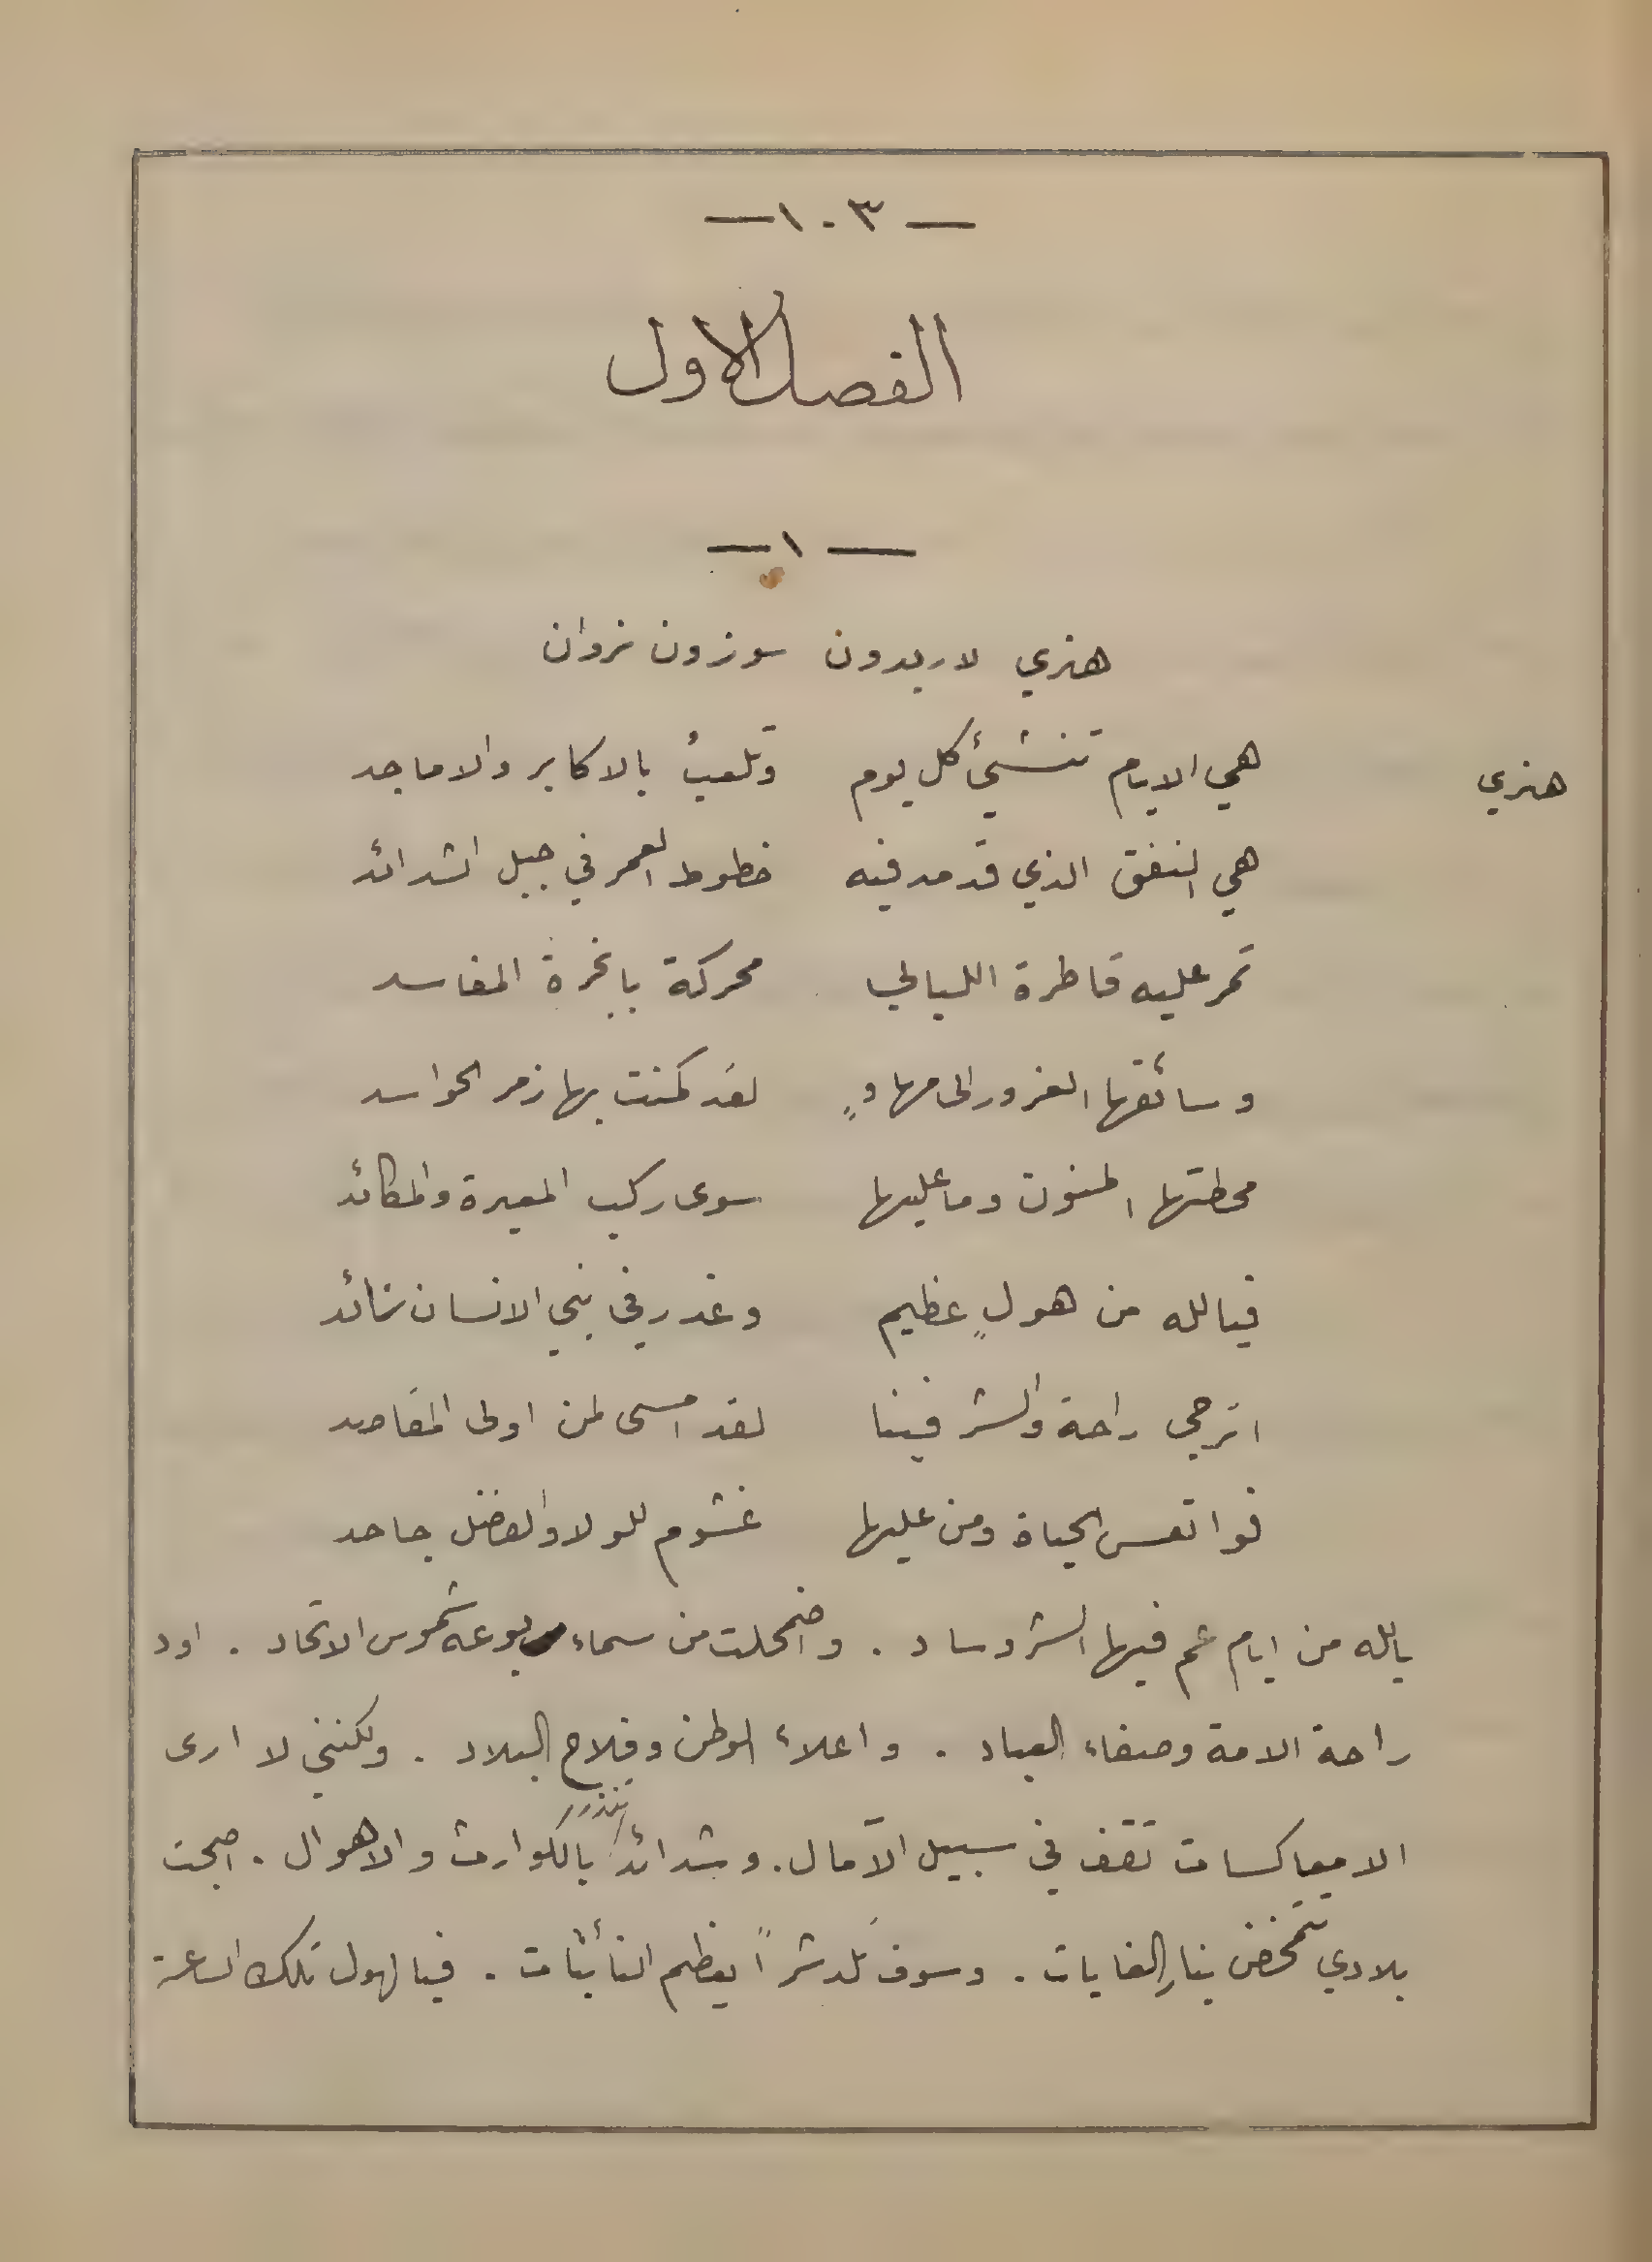 — ١٠٣ —
الفصل الاول
— ١ —
هنري لاريدون سوزون نروان
هنري هي الايام تنشئ كل يوم وتلعبُ بالاكابر والاماجد
هي النفق الذي قد مد فيه خطوط العمر في جبل الشدائد
تمر عليه قاطرة الليالي محركة بابخرة المفاسد
وسائقها الغرور الى مهاوٍ لقد كمنت بها زمر الحواسد
محطتها المنون وما عليها سوى ركب المعيرة والمكائد
فيالله من هولٍ عظيم وغدر في بني الانسان زائد
اترجى راحة والشر فينا لقد امسى لمن اولى المقاصد
فوا تعس الحياة ومن عليها غشوم للولا والفضل جاحد
يالله من ايام عم فيها الشر وساد . واضمحلت من سماء ربوعه شموس الاتحاد . اود
راحة الامة وصفاء العباد . واعلاء الوطن وفلاح البلاد . ولكنني لا ارى
الا معاكسات تقف في سبيل الآمال . وشدائد تنذر بالكوارث والاهوال . اصبحت
بلادي تتمخض بنارِ الغايات . وسوف تَلد شراً يعظم النائبات . فيا لهول تلك الساعة